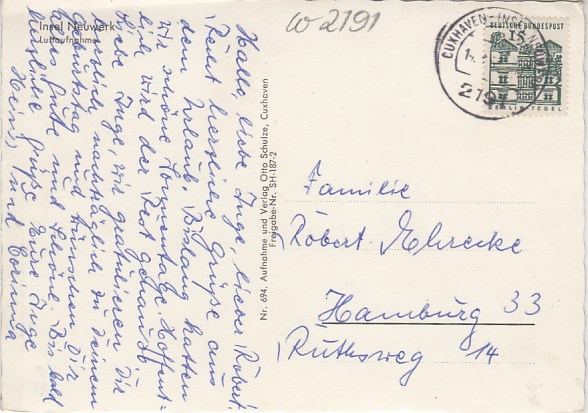 Insel Neuwerk
Luftaufnahme
W 2191
CUXHAVEN-INSEL NEUWERK
219
DEUTSCHE BUNDESPOST
15
BERLIN-TEGEL
Hallo, liebe Inge, lieber Robert.
Recht herzliche Grüße aus
dem Urlaub. Bislang hatten
wir schöne Sonnentage. Hoffent-
lich wird der Rest genauso
Liebe Inge, wir gratulieren Dir
nachträglich zu Deinem
Geburtstag und wünschen Dir
alles Gute und Schöne. Bis bald
herzliche Grüße Eure Inge
Heinz und Corinna
Nr. 694. Aufnahme und Verlag Otto Schulze, Cuxhaven
Freigabe-Nr. SH-187-2
Familie
Robert Ehrecke
Hamburg 33
Ruthsweg 14